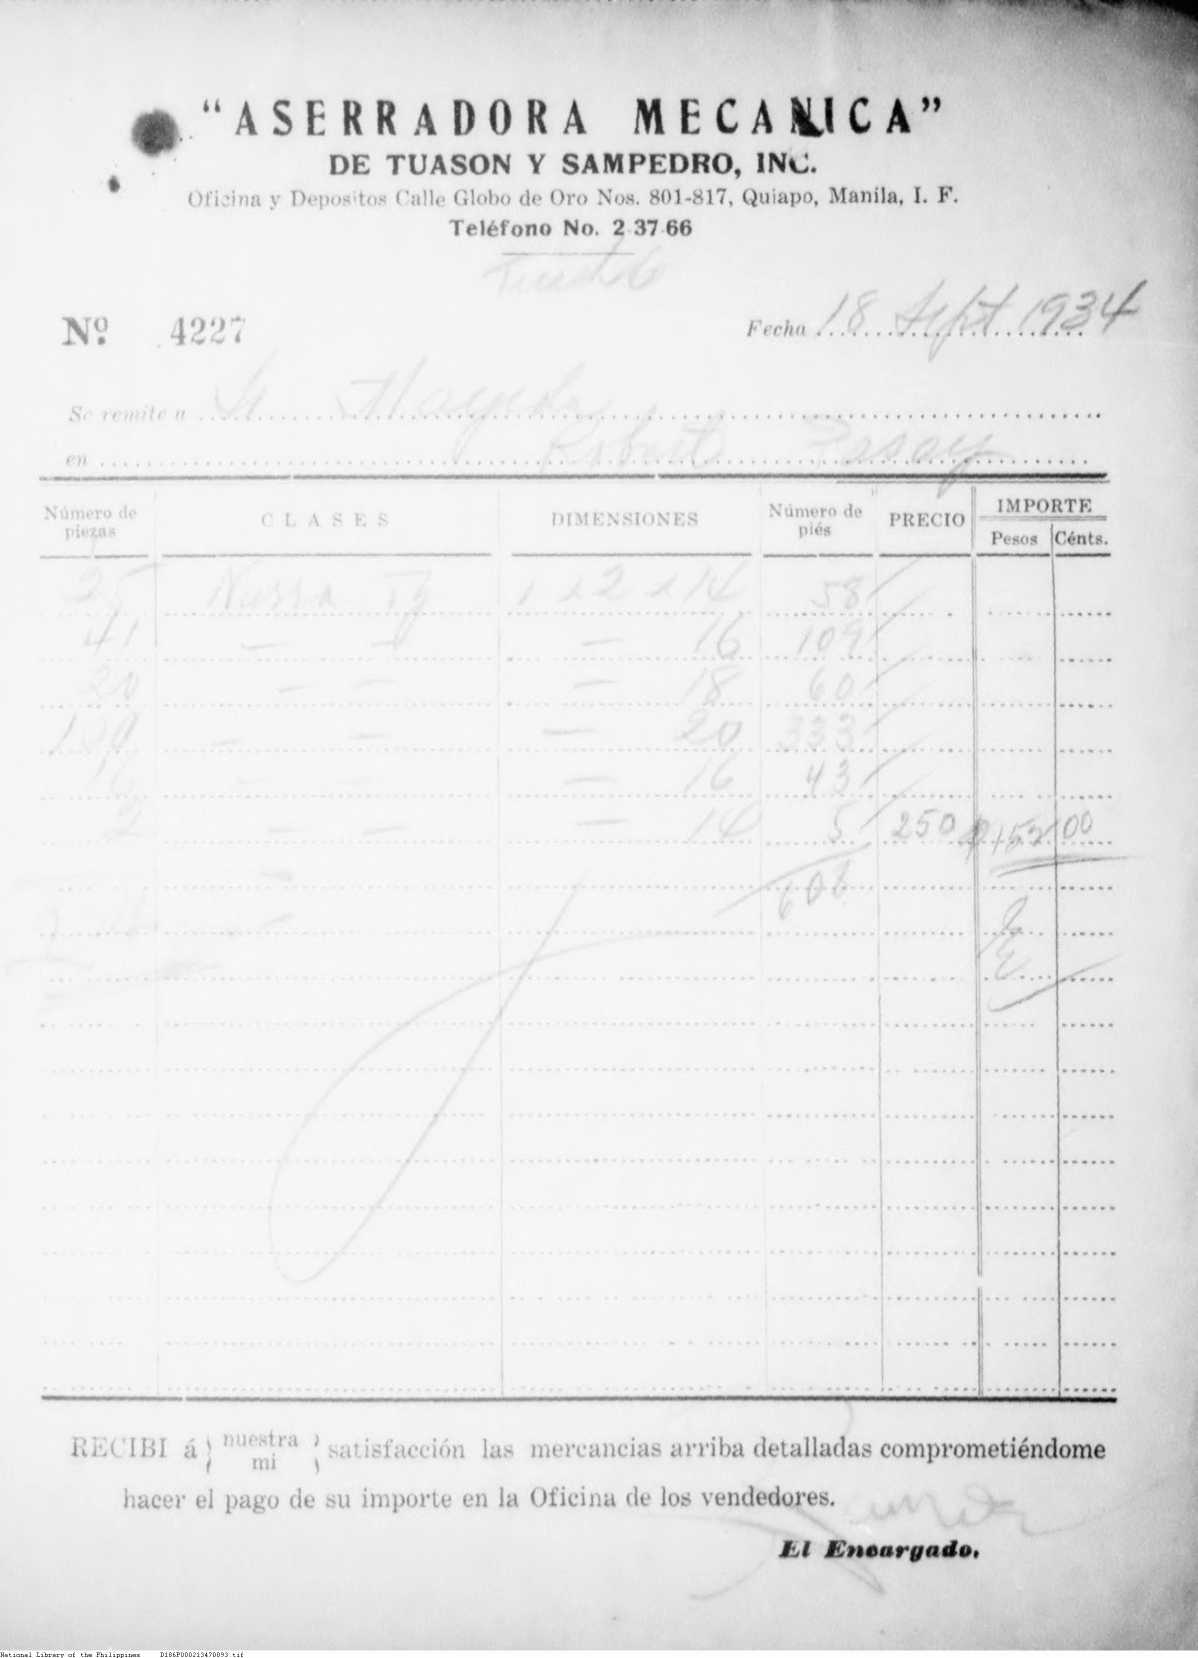 "ASERRADORA MECANICA"
DE TUASON Y SAMPEDRO, INC.
Oficina y Depositos Calle Globo de Oro Nos. 801-817, Quiapo, Manila, I. F.
Teléfono No. 2 37 66
Nº. 4227 Fecha 18 Sept 1934
Se remite a Sr.
en Pasay
Número de piezas CLASES DIMENSIONES Número de piés PRECIO IMPORTE
Pesos Cénts.
25 Narra Tg 1 x 2 x 14 58
41 — — — 16 109
20 — — — 18 60
100 — — — 20 333
16 — — — 16 43
2 — — — 14 5 250 ₱152 00
608
RECIBI á nuestra satisfacción las mercancias arriba detalladas comprometiéndome
mi
hacer el pago de su importe en la Oficina de los vendedores.
El Encargado.
National Library of the Philippines D186P000213470893.tif